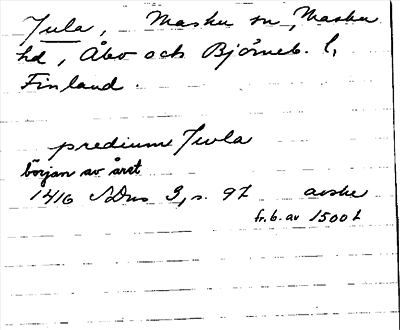 Jula, Masku sn, Masku
hd, Åbo och Björneb. l,
Finland.
predium Juula
början av året
1416 SDns 3, s. 97 avskr
fr. b. av 1500 t